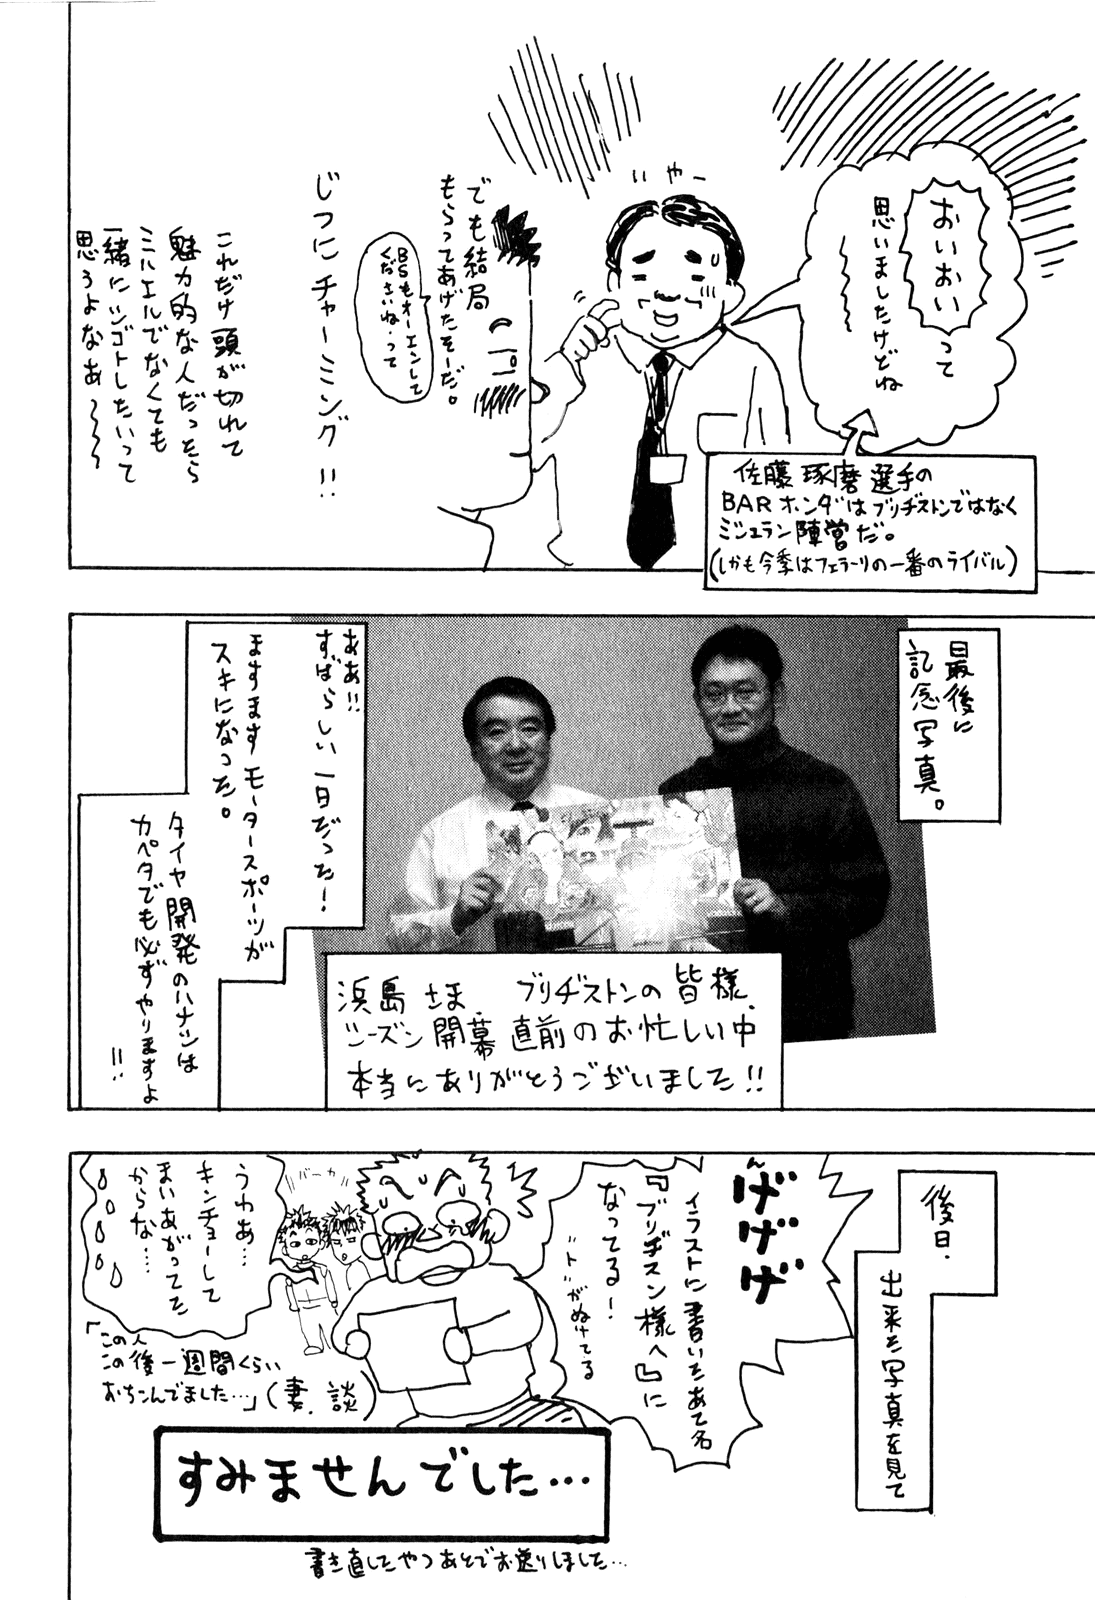 いやー
おいおいって
思いましたけどね
佐藤琢磨選手の
BARホンダはブリヂストンではなく
ミシュラン陣営だ。
(しかも今季はフェラーリの一番のライバル)
でも結局
もらってあげたそーだ。
BSもオーエンして
くださいね。って
じつにチャーミング!!
これだけ頭が切れて
魅力的な人だったら
ミハエルでなくても
一緒にシゴトしたいって
思うよなあ〜〜〜
最後に
記念写真。
ああ!!
すばらしい一日だった!
ますますモータースポーツが
スキになった。
タイヤ開発のハナシは
カペタでも必ずやりますよ
!!
浜島さま、ブリヂストンの皆様、
シーズン開幕直前のお忙しい中
本当にありがとうございました!!
後日、
出来た写真を見て
んげげげ
イラストに書いたあて名
『ブリヂスン様へ』に
なってる!
"ト"がぬけてる
バーカ
うわあ…
キンチョーして
まいあがってた
からな…
「この人
この後一週間くらい
おちこんでました…」(妻・談)
すみませんでした…
書き直したやつあとでお送りしました…